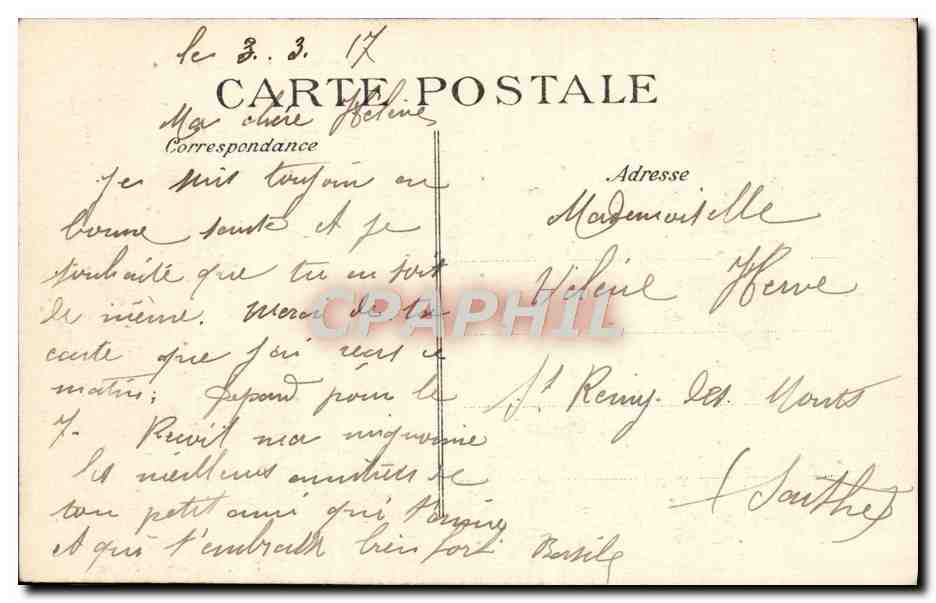 le 3. 3. 17
CARTE POSTALE
Ma chère Hélène
Correspondance
je suis toujour en
bonne sante et je
souhaite que tu en soit
de même. Merci de ta
carte que j'ai reçus ce
matin; Depard pour le
7. Reçoit ma mignonne
les meilleures amitiées de
ton petit ami qui t'aime
et qui t'embrasse bien fort Basile
Adresse
Mademoiselle
Hélène Herve
St Remy des Monts
(Sarthe)
CPAPHIL